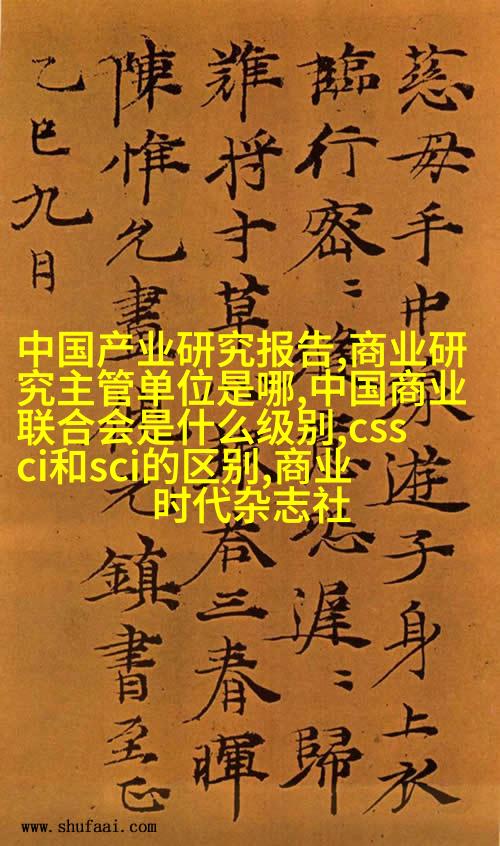 慈母手中線遊子身上衣
臨行密〻縫恐遲〻歸
難将寸草荅三春暉
陳惟允畫允鎮書至正
乙巳九月
中国产业研究报告,商业研
究主管单位是哪,中国商业
联合会是什么级别,css
ci和sci的区别,商业
时代杂志社
www.shufaai.com